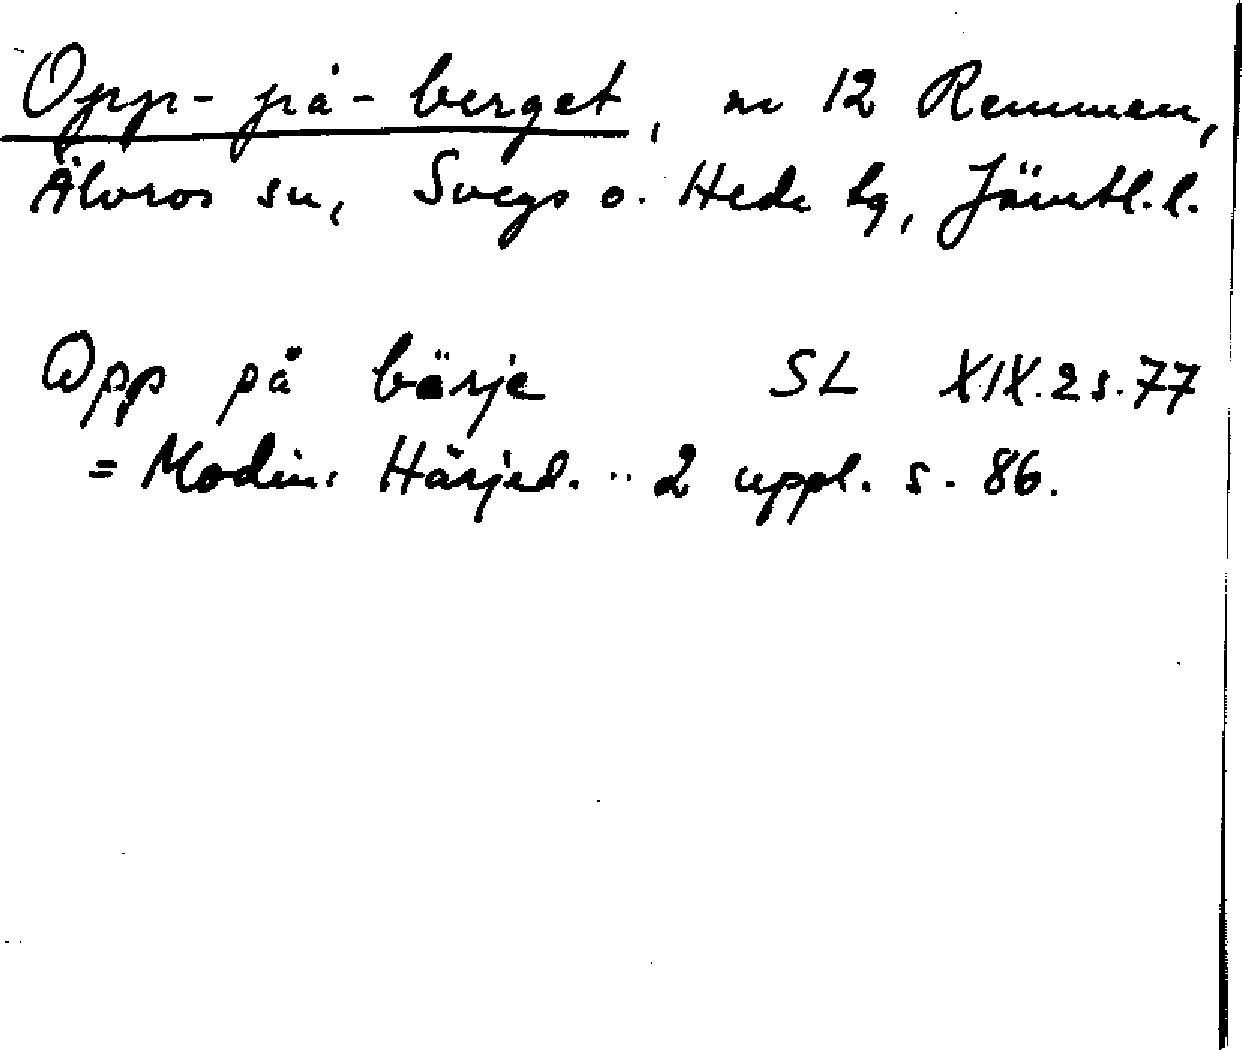 Opp-på-berget, nr 12 Remmen,
Älvros sn, Svegs o. Hede tg, Jämtl.l.
Opp på börje SL XIX.2 s.77
= Modin. Härjed. .. 2 uppl. s. 86.